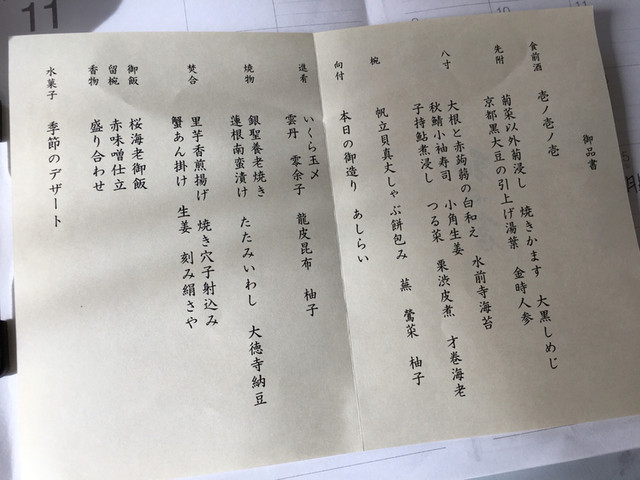 11
御品書
食前酒 壱ノ壱ノ壱
先附 菊菜以外菊浸し 焼きかます 大黒しめじ
京都黒大豆の引上げ湯葉 金時人参
八寸 大根と赤蒟蒻の白和え 水前寺海苔
秋鯖小袖寿司 小角生姜 栗渋皮煮 才巻海老
子持鮎煮浸し つる菜
椀 帆立貝真丈しゃぶ餅包み 蕪 鶯菜 柚子
向付 本日の御造り あしらい
進肴 いくら玉〆 龍皮昆布 柚子
雲丹 零余子
焼物 銀聖養老焼き たたみいわし 大徳寺納豆
蓮根南蛮漬け
焚合 里芋香煎揚げ 焼き穴子射込み
蟹あん掛け 生姜 刻み絹さや
御飯 桜海老御飯
留椀 赤味噌仕立
香物 盛り合わせ
水菓子 季節のデザート